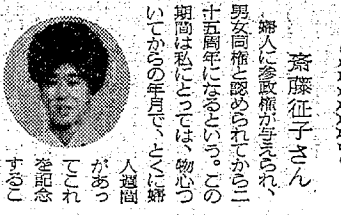 斎藤征子さん
婦人に参政権が与えられ、
男女同権と認められてから二
十五周年になるという。この
期間は私にとっては、物心つ
いてからの年月で、とくに婦
人週間
があっ
てこれ
を記念
するこ